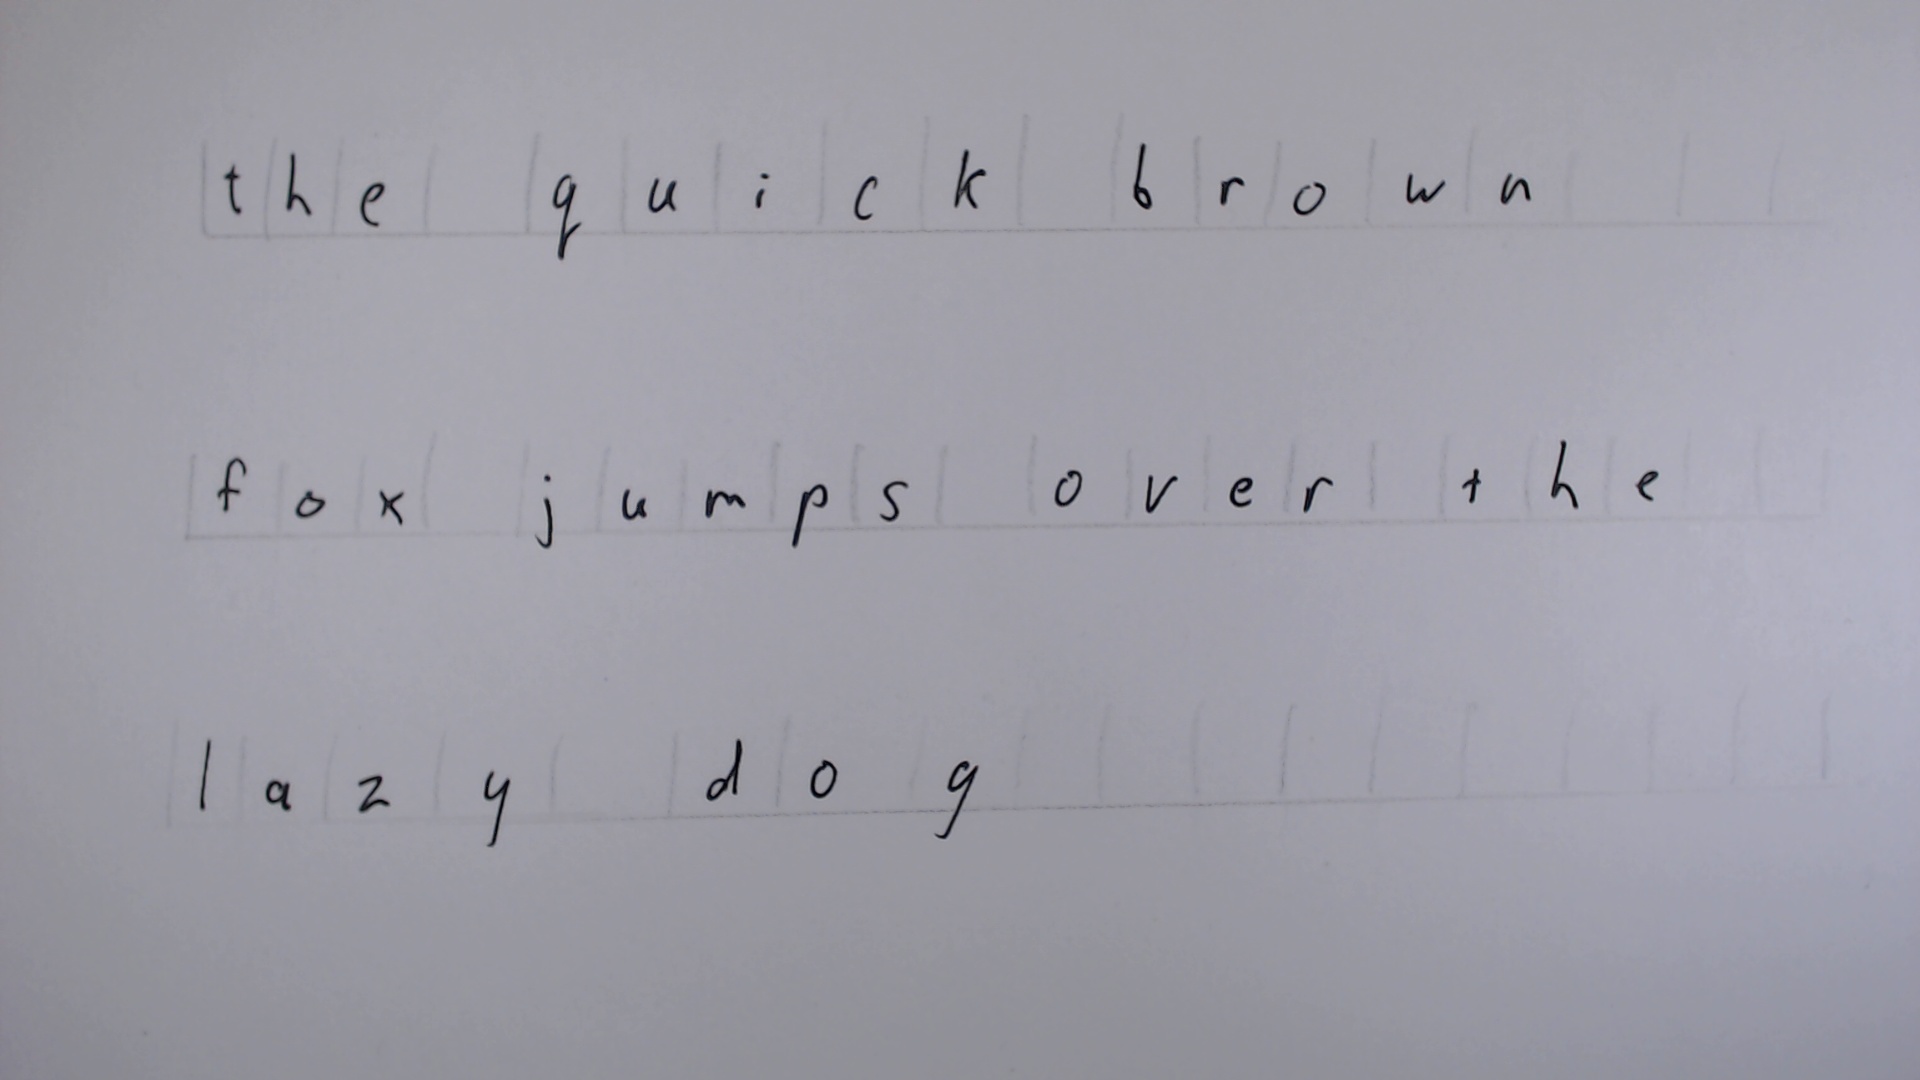 the quick brown
fox jumps over the
lazy dog